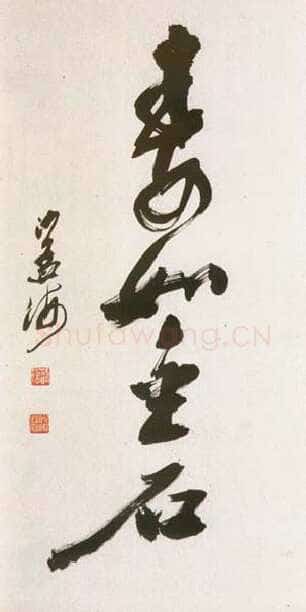 壽如金石
沙孟海
shufawang.CN